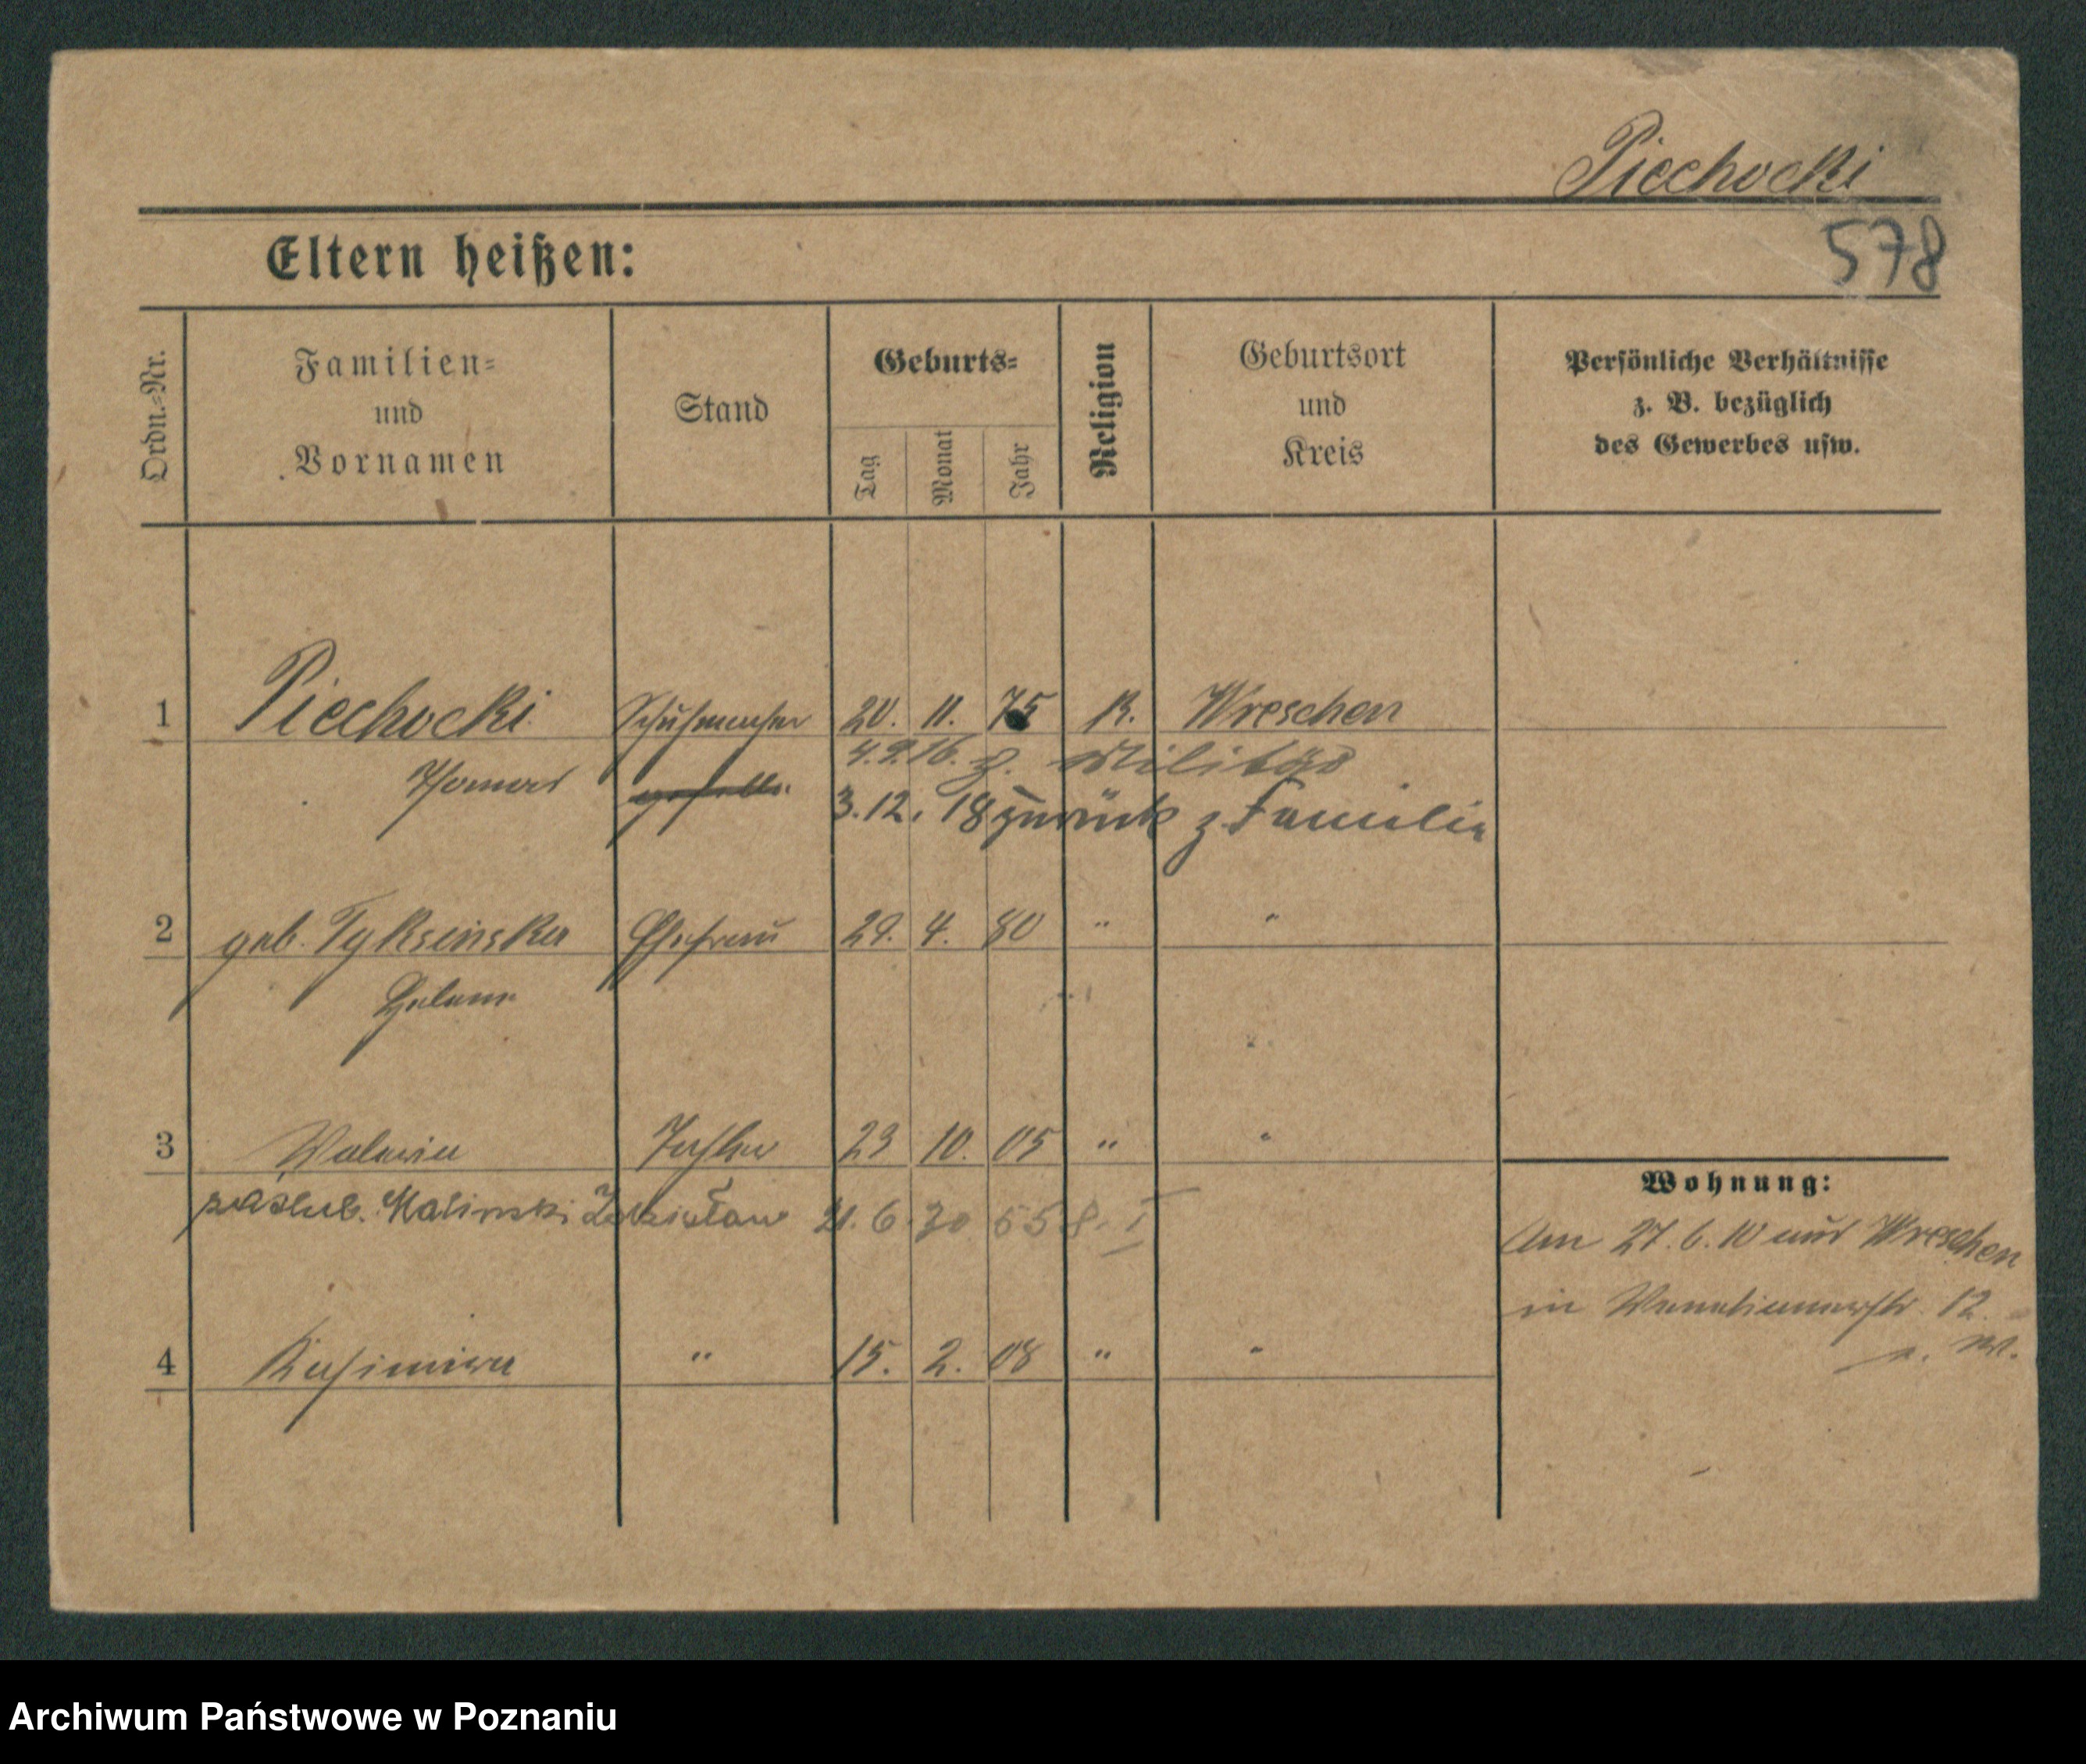 Piechocki
Eltern heißen:
578
Ordn.=Nr.
Familien=
und
Vornamen
Stand
Geburts=
Tag
Monat
Jahr
Religion
Geburtsort
und
Kreis
Persönliche Verhältnisse
z. B. bezüglich
des Gewerbes usw.
1 Piechocki Schuhmacher 20. 11. 75 K. Wreschen
4.9.16. z. Militär
Thomas geselle 3.12.18 zurück z. Familie
2 geb. Tyksinska Ehefrau 29. 4. 80 " "
Helene
3 Valeria Tochter 23 10. 05 " "
zaślub. Malinski Zdzisław 21.6.30 558. I
4 Kasimira " 15. 2. 08 " "
Wohnung:
Am 27.6.10 aus Wreschen
in Venetianerstr. 12